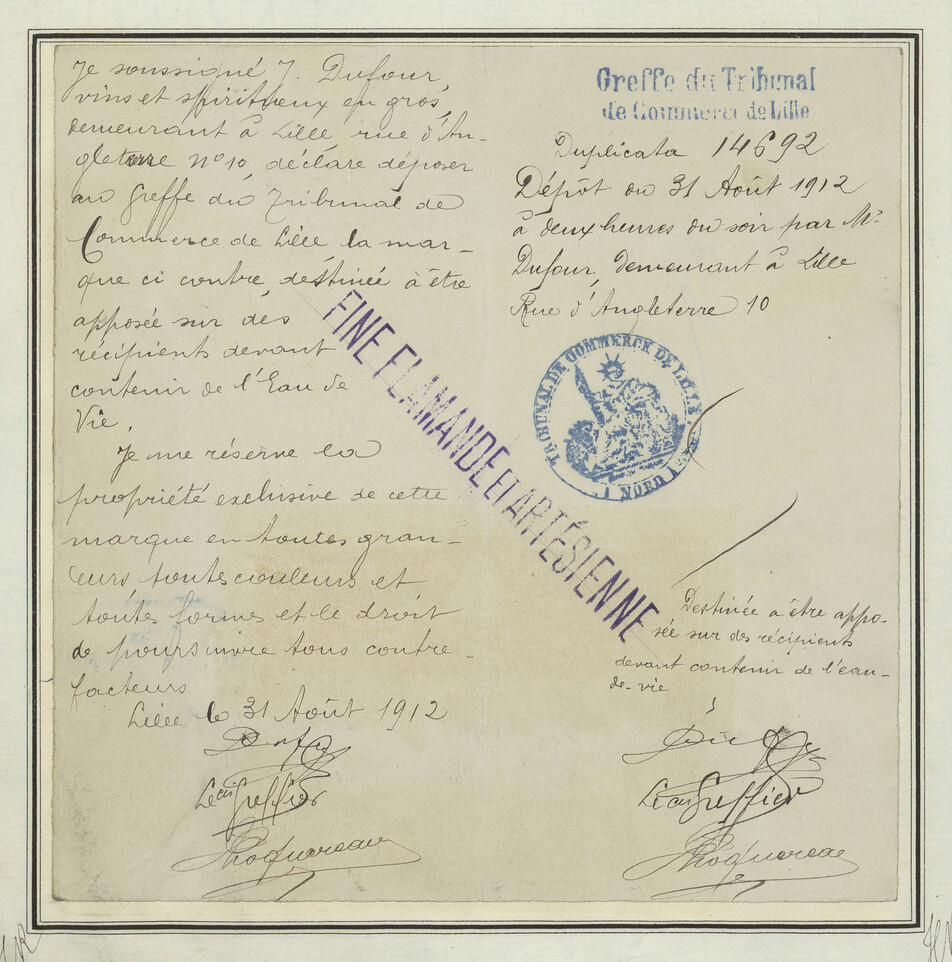 Je soussigné J. Dufour
vins et spiritueux en gros,
demeurant à Lille rue d'An-
gleterre N° 10, déclare déposer
au Greffe du Tribunal de
Commerce de Lille la mar-
que ci contre, destinée à être
apposée sur des
récipients devant
contenir de l'Eau de
Vie.
Je me réserve la
propriété exclusive de cette
marque en toutes gran-
deurs toutes couleurs et
toutes formes et le droit
de poursuivre tous contre-
facteurs
Lille le 31 Août 1912
Le Greffier
FINE FLAMANDE ET ARTÉSIENNE
Greffe du Tribunal
de Commerce de Lille
Duplicata 14692
Dépôt du 31 Août 1912
à deux heures du soir par Mr
Dufour, demeurant à Lille
Rue d'Angleterre 10
TRIBUNAL DE COMMERCE DE LILLE
NORD
Destinée à être appo-
sée sur des récipients
devant contenir de l'eau-
de-vie
Le Greffier